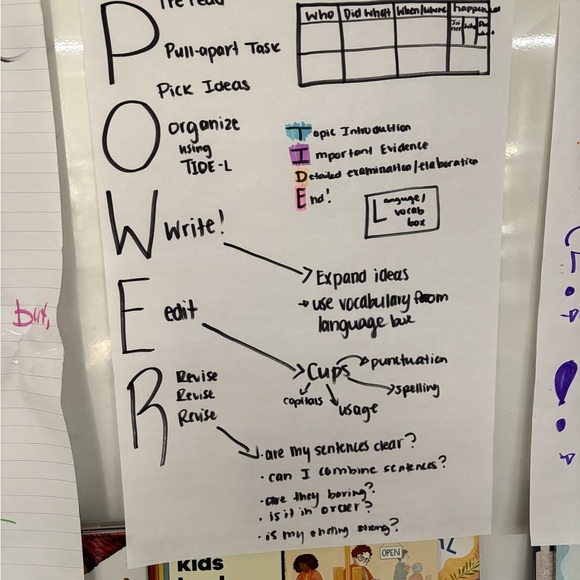 P
Pull-apart Task
Pick Ideas
Who Did What When/where happened
O
organize
using
TIDE-L
Topic Introduction
Important Evidence
Detailed examination/elaboration
End!
Language/
vocab
box
W
Write!
Expand ideas
→ use vocabulary from
language box
E
edit
Cups
punctuation
capitals
usage
spelling
R
Revise
Revise
Revise
· are my sentences clear?
· can I combine sentences?
· are they boring?
· is it in order?
· is my ending strong?
but,
Kids
OPEN